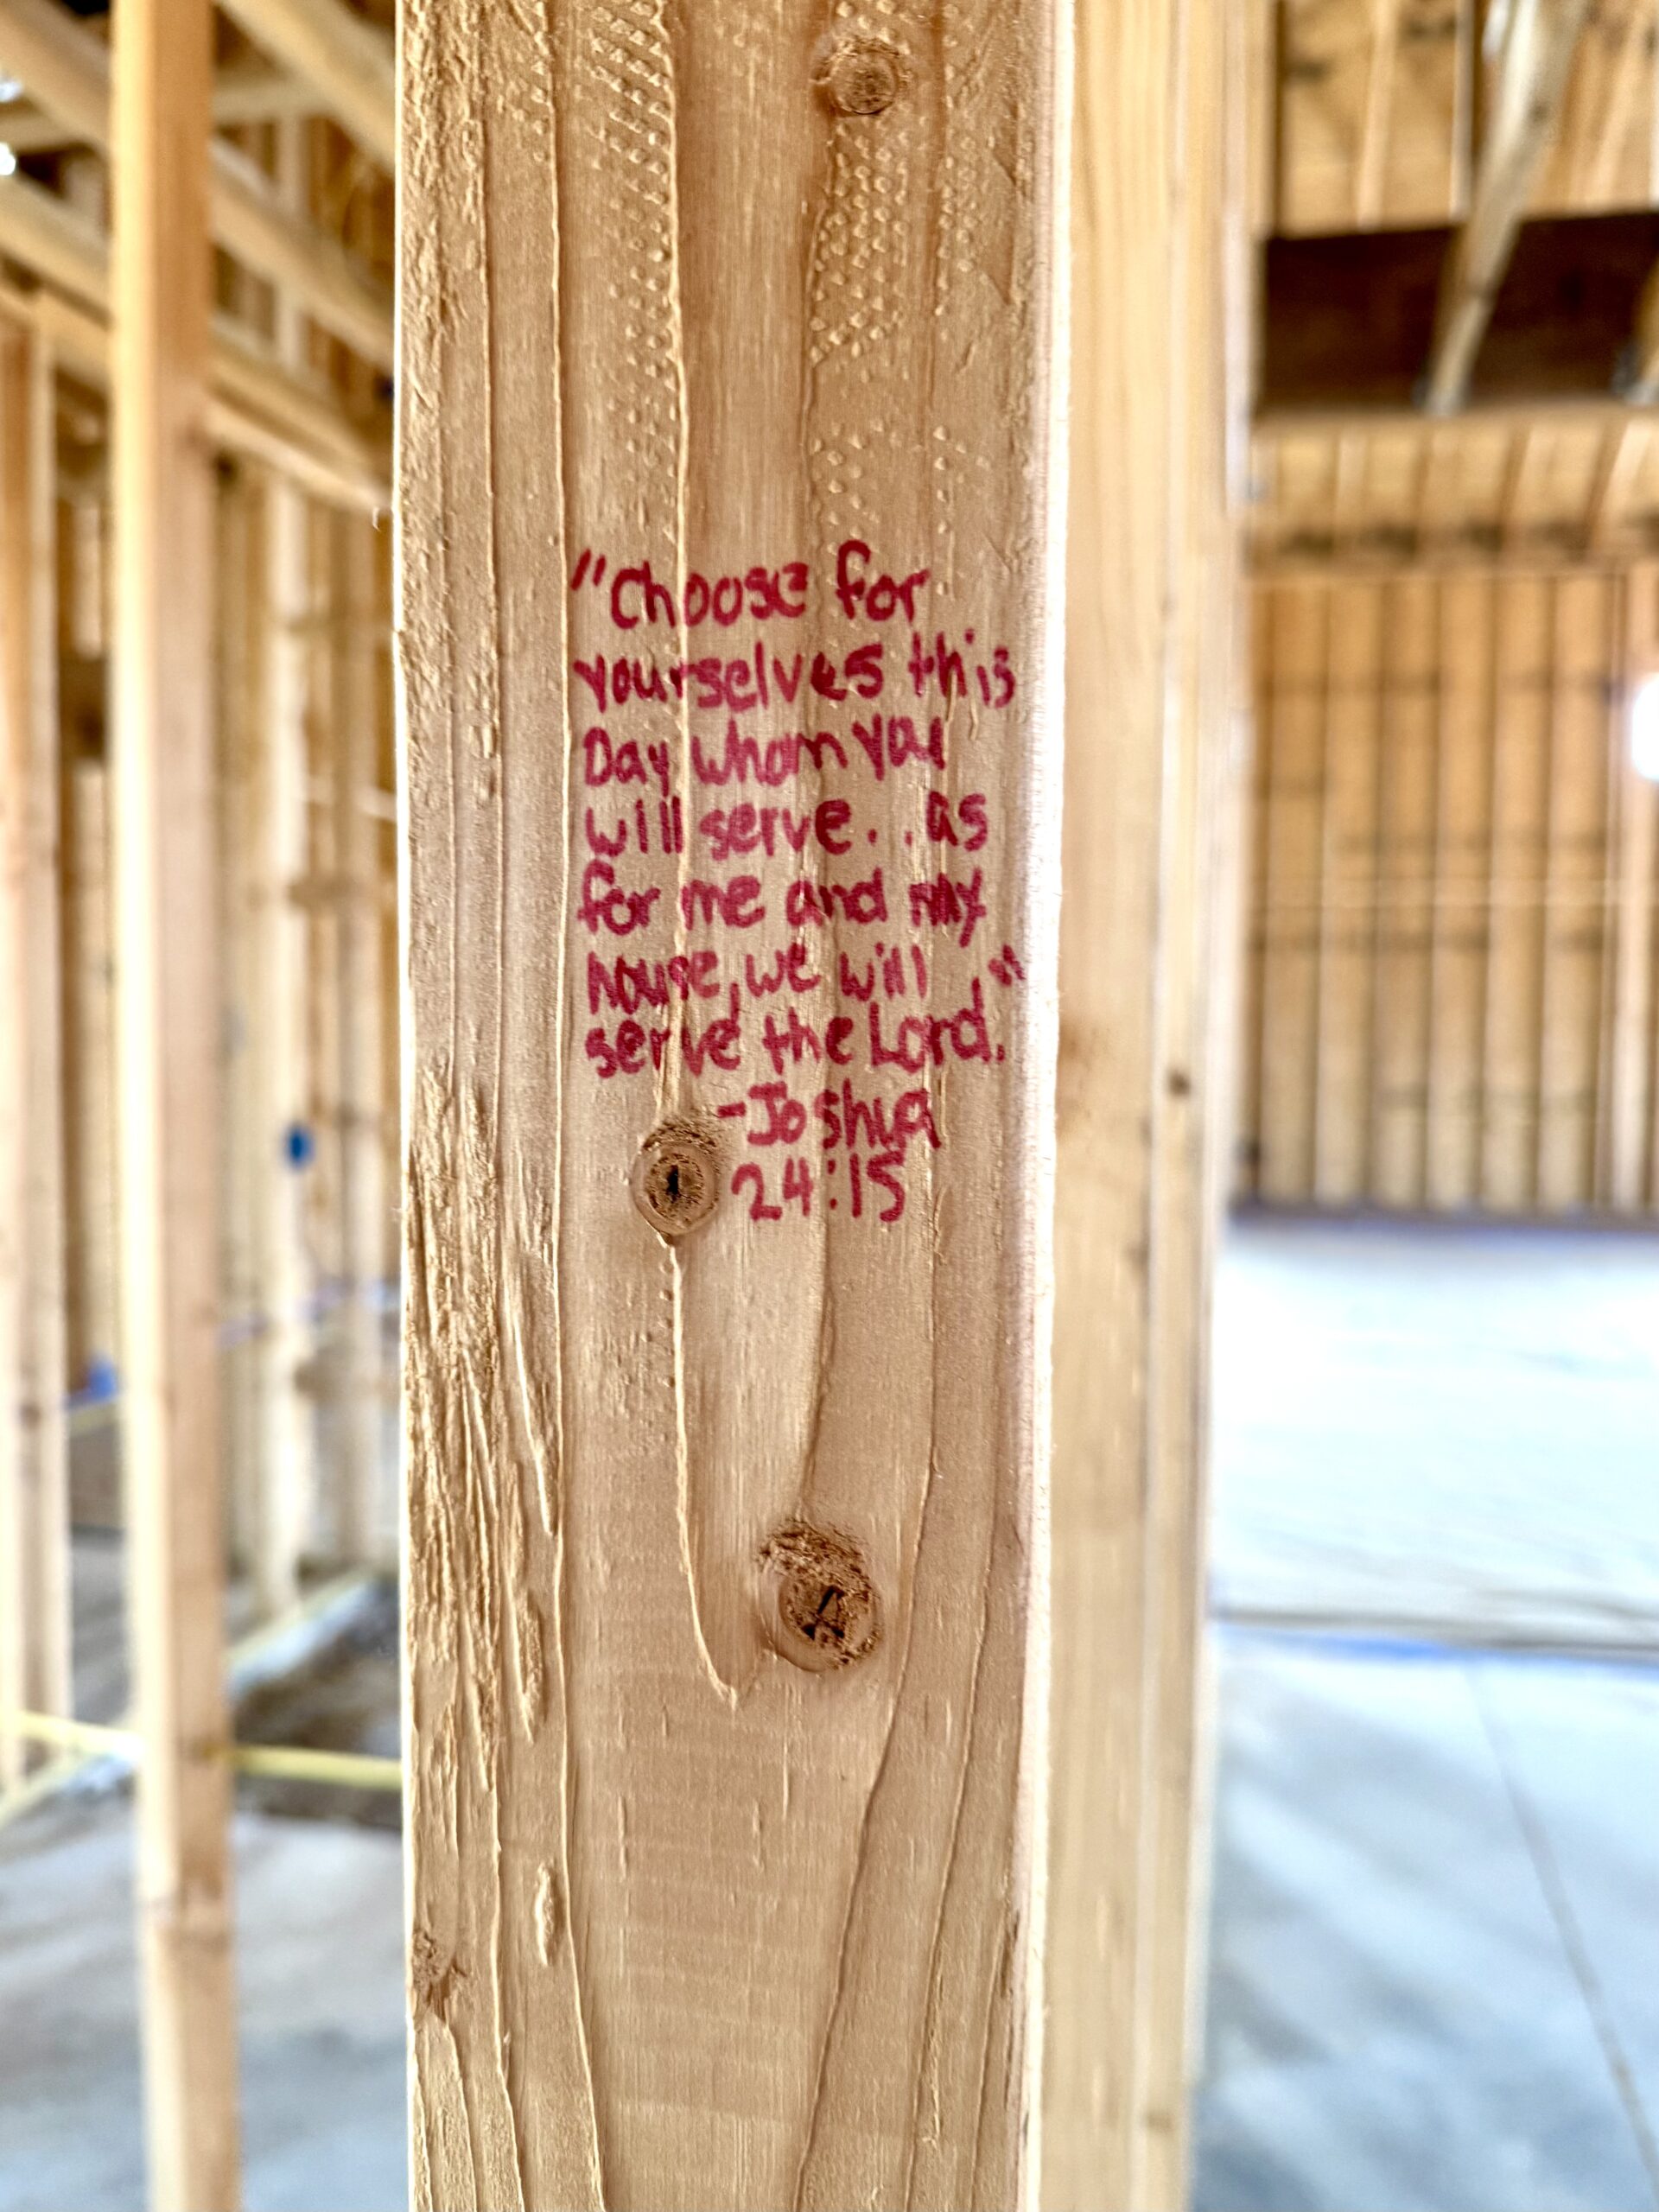 "Choose for
yourselves this
Day whom you
will serve.. as
for me and my
house, we will
serve the Lord."
-Joshua
24:15